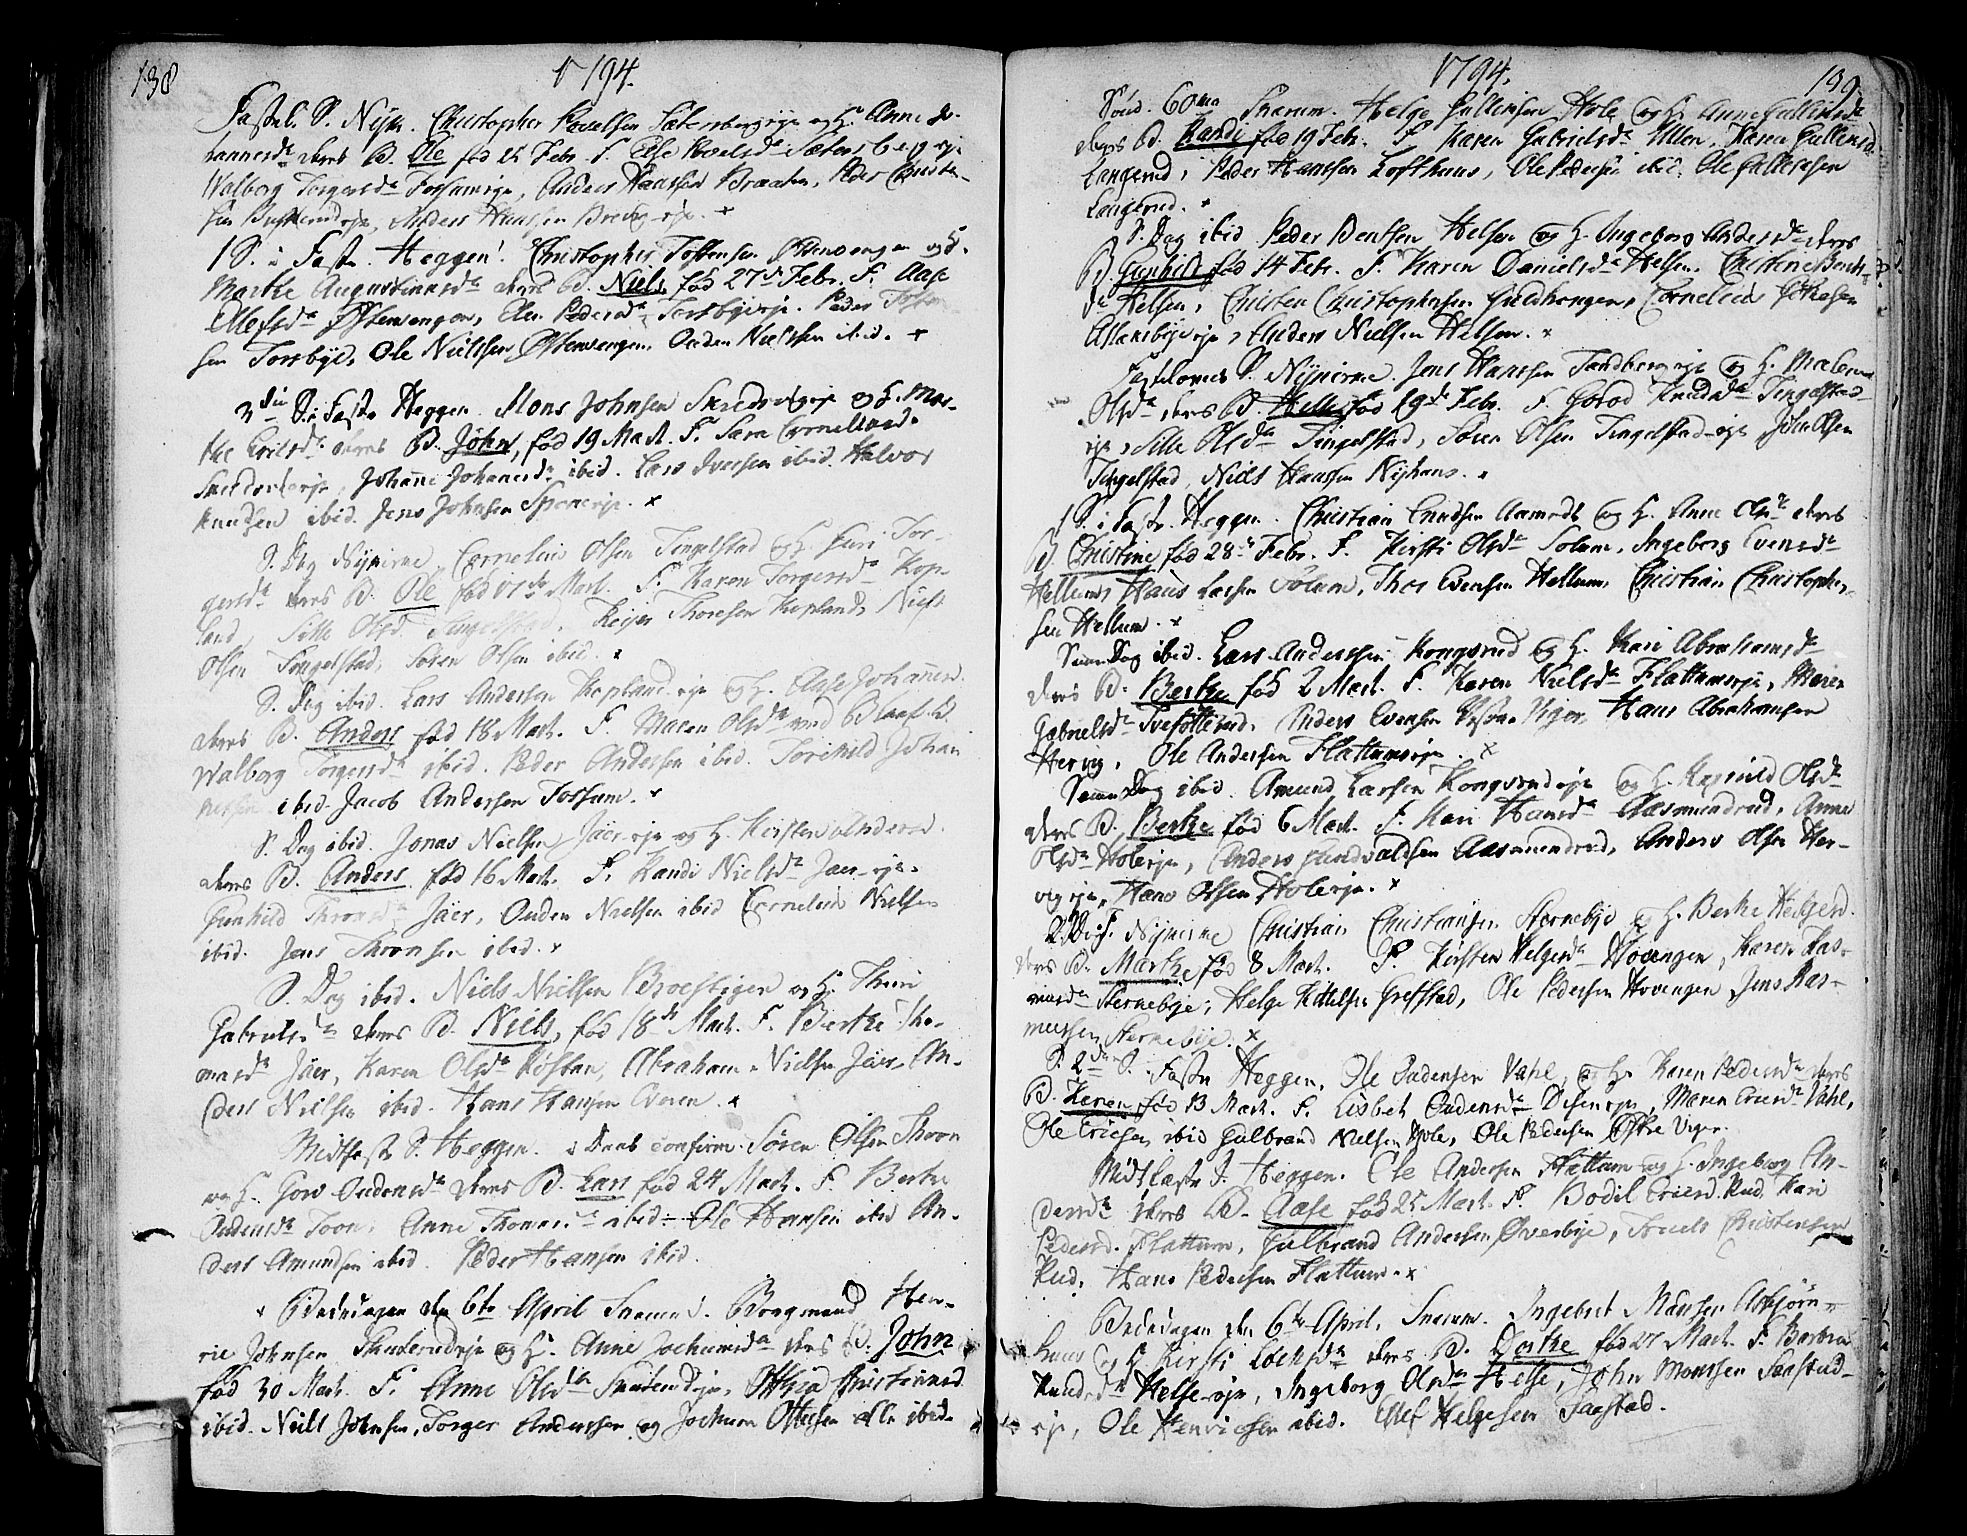 138
1794.
Fastel. S. Nyk. Christopher Povelsen Sætersbergeje og H. Anne Jo-
hannesd. deres B. Ole fød 25 Febr. F. Else Povelsd. Sætersbergeje
Walborg Torgersd. Fossumeje, Anders Hansen Braaten, Peder Christen-
sen Buskerudeje, Anders Hansen Brevig-eje. x
1 S. i Faste. Heggen. Christopher Tostensen Østenvengen og H.
Marthe Augustinusd. deres B. Niels fød 27de Febr. F. Aase
Ellefsd. Østenvengen, Elen Pedersd. Torsbyeeje. Peder Tosten-
sen Torsbye, Ole Nielsen Østenvengen. Ouden Nielsen ibid. x
3die S. i Faste Heggen. Mons Johnsen Skredsvigeje og H. Mar-
the Erilsd. deres B. John, fød 19 Mart. F. Sara Corneliusd.
Skredsvigeje, Johanne Johanesd. ibid. Lars Iversen ibid. Halvor
Knudsen ibid. Jens Johnsen Sponeeje. x
S. Dag Nykirne, Cornelius Olsen Tingelstad og H. Guri Tor-
gersd. deres B. Ole fød Mart. F. Karen Torgersd. Kop-
land, Sille Olsd. Tingelstad. Reyer Thoresen Kopland, Niels
Olsen Tingelstad, Søren Olsen ibid. x
S. Dag ibid. Lars Andersen Kopland eje og H. Aase Johanesd.
deres B. Anders fød 18 Mart. F. Maren Olsd. ved Blaafd.
Walborg Torgersd. ibid. Peder Andersen ibid. Torkild Johan
nesen ibid. Jacob Andersen Fossum. x
S. Dag ibid. Jonas Nielsen Jäer-eje og H. Kirsten Andersd.
deres B. Anders fød 16 Mart. F. Randi Nielsd. Jäer-eje.
Gunhild Thronsd. Jäer, Ouden Nielsen ibid Cornelius Nielsen
ibid. Jens Thronsen ibid. x
S. Dag ibid. Niels Nielsen Broestigen og H. Thuri
Gabrielsd. deres B. Niels, fød 18de Mart. F. Berthe Tho-
masd. Jäer, Karen Olsd. Røstan, Abraham Nielsen Jäer. An-
ders Nielsen ibid. Hans Hansen Even. x
Midfaste S. Heggen. i Daab confirm. Søren Olsen Thoon
og H. Goro Oudensd. deres B. Lars fød 24 Mart. F. Berthe
Oudensd. Toon. Anne Thomasd. ibid. Ole Hansen ibid An-
ders Amundsen ibid. Peder Hansen ibid.
x Bededagen den 6te April Snarum. Borgmand Hen-
ric Johnsen Skuterudeje og H. Anne Jochumsd. deres B. John
fød 30 Mart. F. Anne Olsd. Skuterudeje, Othia Christensd.
ibid. Niels Johnsen, Torger Anderssen og Jochum Ottesen alle ibid.
1794.
139
60ma Snarum. Helge Gullixsen Hole og H. Anne Gullixsd.
deres B. Randi fød 19 Febr. F. Karen Gabrielsd. Ullen, Karen Gullixsd.
Langerud, Peder Hanssen Lofthuus, Ole Pedersen ibid. Ole Gullixsen
Langerud. x
S. Dag ibid. Peder Bentsen Helsen og H. Ingeborg Andersd. deres
B. Gunhild fød 14 Febr. F. Karen Danielsd. Helsen. Christine Bents-
d. Helsen, Christen Christophersen Guldhongen, Cornelius
Anders Nielsen Helsen. x
Fastelavns S. Nykirne. Jens Hanssen Tandbergeje og H. Malene
Olsd. deres B. Helle fød 19de Febr. F. Goroe Knudsd. Tingelstad-
eje, Sille Olsd. Tingelstad, Søren Olsen Tingelstad-eje, Olsen
Tingelstad, Niels Hanssen Nyhuus. x
1 S. i Faste. Heggen. Christian Knudsen Aamodt og H. Anne Olsd. deres
B. Christine fød 28de Febr. F. Kirsti Olsd. Solum, Ingeborg Evensd.
Hellum, Hans Larsen Solum, Thor Evensen Hellum, Christian Christopher-
sen Hellum. x
Samme Dag ibid. Lars Anderssen Kongsrud og H. Kari Abrahamsd.
deres B. Berthe fød 2 Mart. F. Karen Nielsd. Flattumeje, Maren
Gabrielsd. Anders Evensen Viger, Hans Abrahamsen
Hervig, Ole Andersen Flattumeje. x
Samme Dag ibid. Amund Larsen Kongsrudeje og H. Ragnild Olsd.
deres B. Berthe fød 6 Mart. F. Kari Hansd. Aasmundrud, Anne
Olsd. Holeeje, Anders Gundvaldsen Aasmundrud, Anders Olsen Her-
vigeje, Hans Olsen Holeeje. x
2. S. i F. Nykirne Christian Christiansen Sternebye og H. Berthe Helgesd.
deres B. Marthe fød 8 Mart. F. Kirsten Helgesd. Hovengen, Karen Ras-
musd. Sternebye, Helge Kittelsen Grefstad, Ole Pedersen Hovengen, Jens Ras-
mussen Sternebye. x
S. 2den S. Faste Heggen. Ole Oudensen Vahl, og H. Karen Pedersd. deres
B. Karen, fød 13 Mart. F. Lisbet Oudensd. Diseneje, Maren Ericsd. Vahl,
Ole Ericsen ibid Gulbrand Nielsen Hole, Ole Pedersen Østre Viger.
Midfaste S. Heggen. Ole Andersen Flattum og H. Ingeborg An-
dersd. deres B. Aase fød 25 Mart. F. Bodil Ericsd. Rud, Kari
Pedersd. Flattum, Gulbrand Andersen Øverbye, Truels Christensen
Rud, Hans Pedersen Flattum. x
Bededagen den 6te April, Snarum. Ingebret Monsen Asbjørn-
huus og H. Kirsti deres B. Dorthe fød 27 Mart. F. Barbra
Knudsd. Helse-eje, Ingeborg Olsd. Helse, John Monssen Saastad-
eje, Ole Henricsen ibid. Ellef Helgesen Saastad.